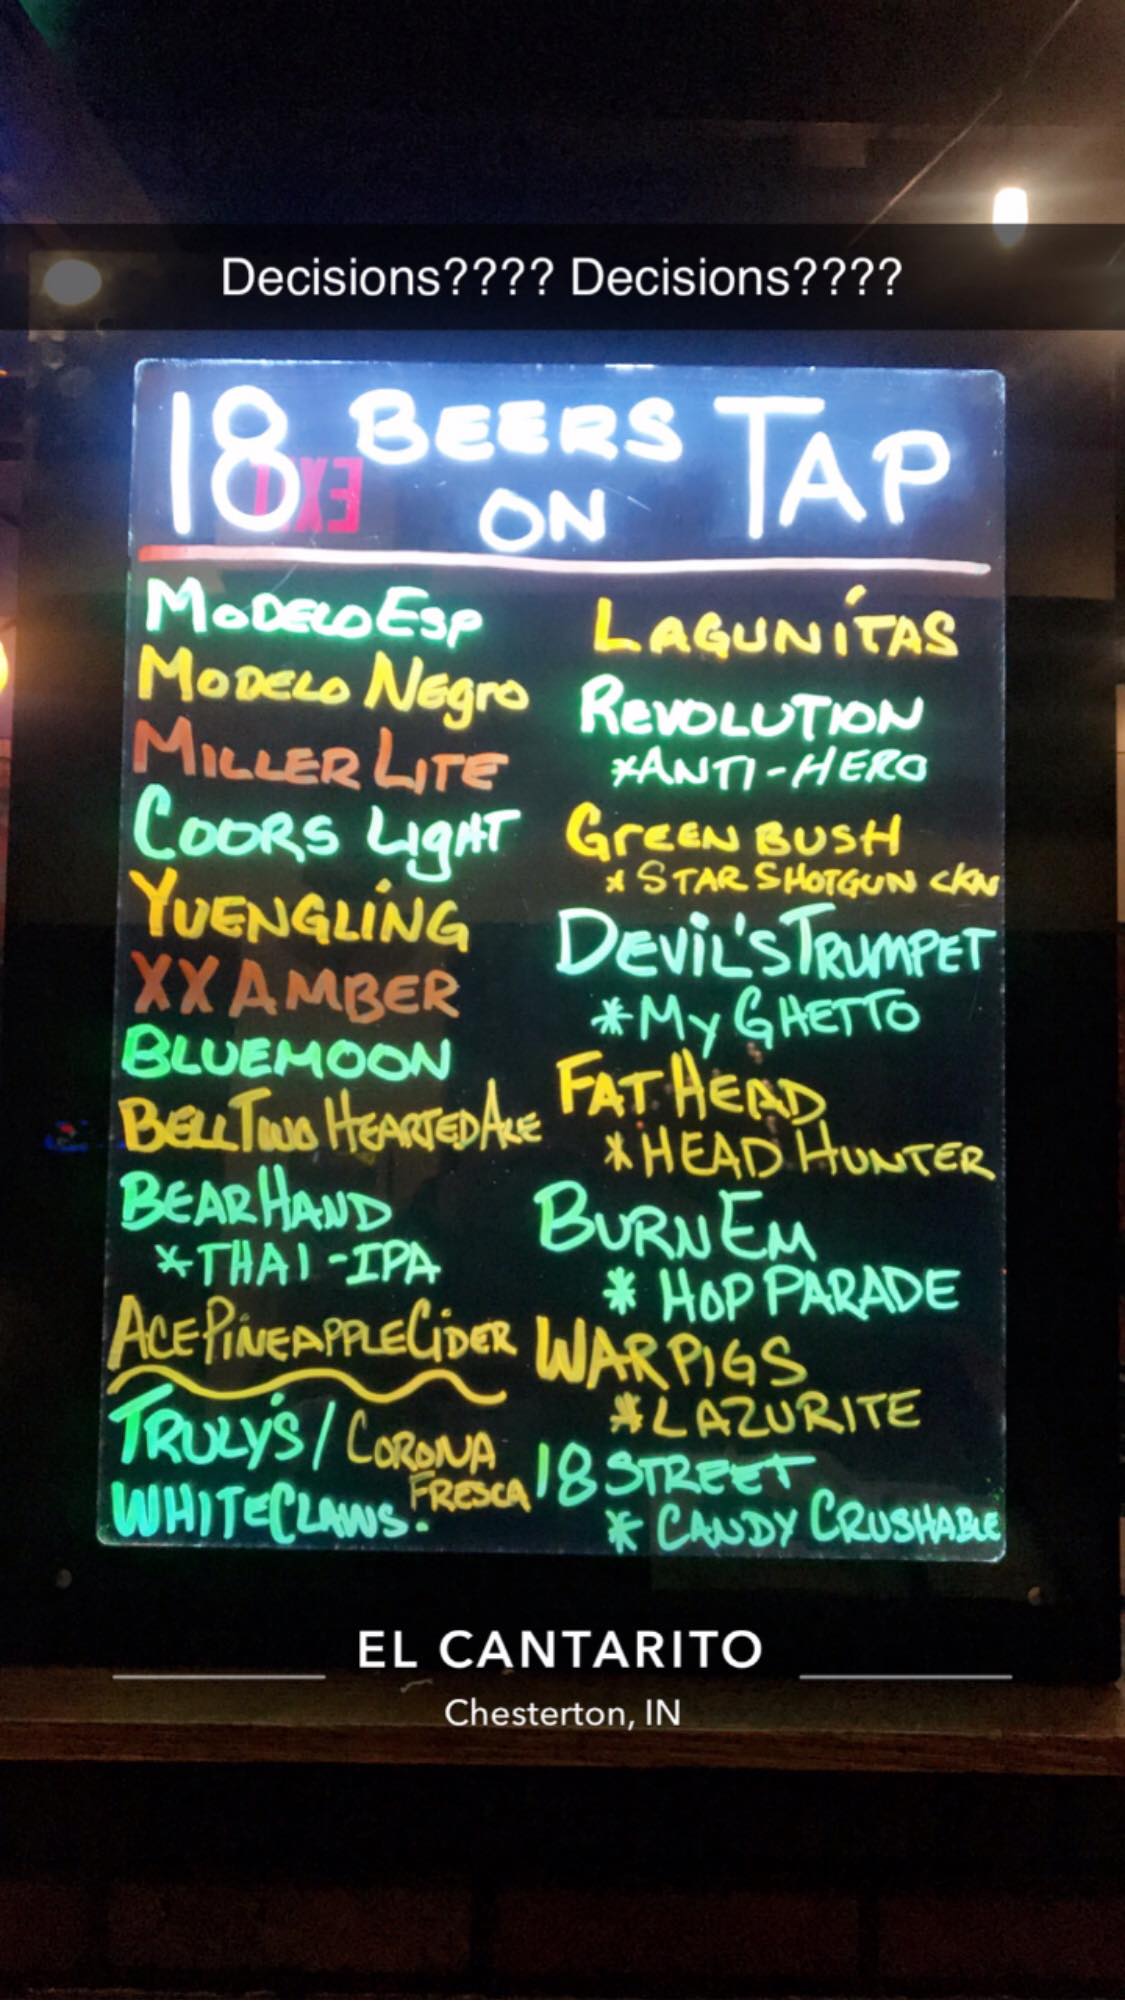 Decisions???? Decisions????
18 BEERS ON TAP
EXIT
MODELO ESP
MODELO NEGRO
MILLER LITE
COORS LIGHT
YUENGLING
XX AMBER
BLUEMOON
BELL TWO HEARTED ALE
BEARHAND
*THAI-IPA
ACE PINEAPPLE CIDER
TRULY'S/ CORONA
FRESCA
WHITECLAWS.
LAGUNITAS
REVOLUTION
*ANTI-HERO
GREEN BUSH
* STAR SHOTGUN CKN
DEVIL'S TRUMPET
*MY GHETTO
FAT HEAD
*HEAD HUNTER
BURN EM
* HOP PARADE
WARPIGS
*LAZURITE
18 STREET
* CANDY CRUSHABLE
EL CANTARITO
Chesterton, IN